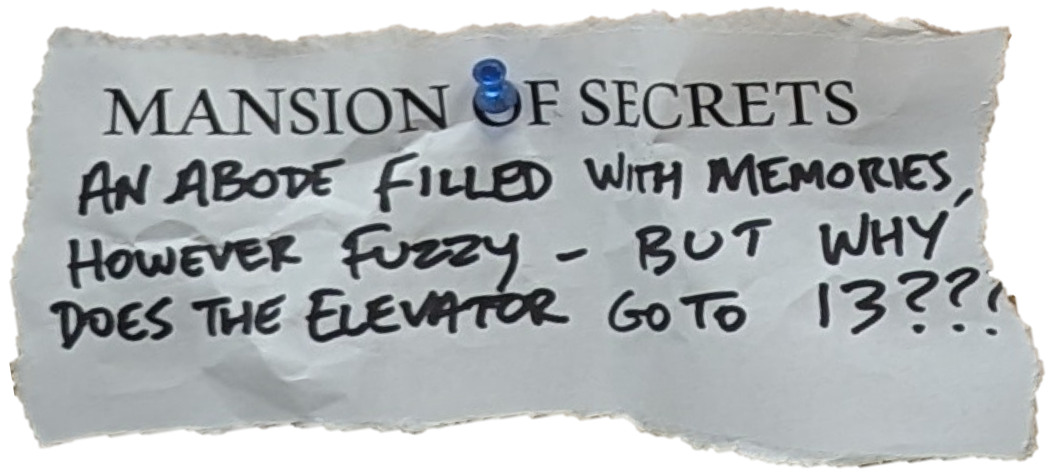 MANSION OF SECRETS
AN ABODE FILLED WITH MEMORIES,
HOWEVER FUZZY - BUT WHY
DOES THE ELEVATOR GO TO 13???